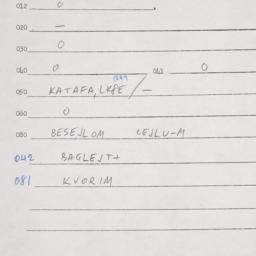 012 0
020 —
030 0
040 0 041 0
050 KATAFA, LKŠE / —
060 0
080 BESEJLOM CEJLU-M
042 BAGLEJT+
081 KVORIM